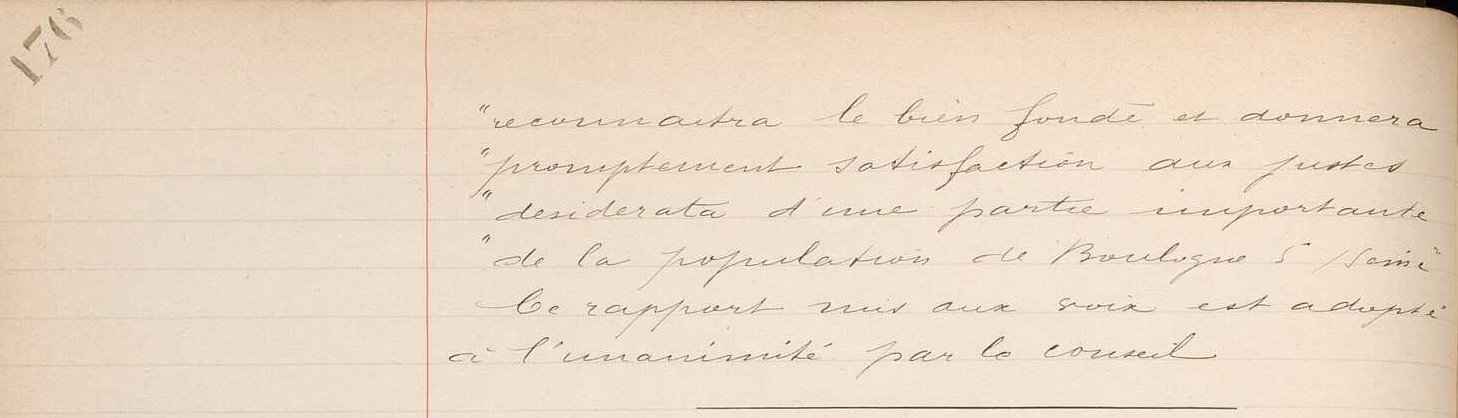 176
"reconnaitra le bien fondé et donnera
"promptement satisfaction aux justes
"desiderata d'une partie importante
"de la population de Boulogne s/Seine"
Ce rapport mis aux voix est adopté
à l'unanimité par le conseil